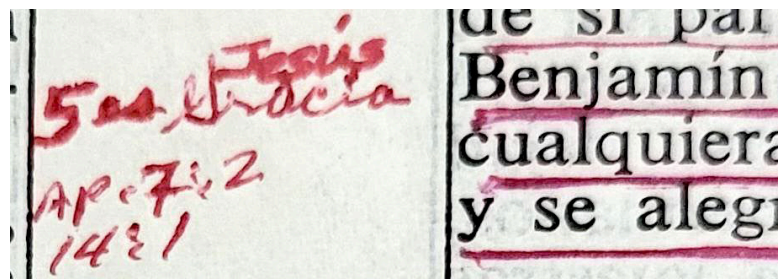 Jesús
5 es Gracia
Ap. 7:2
14:1
de si par
Benjamín
cualquiera
y se alegr